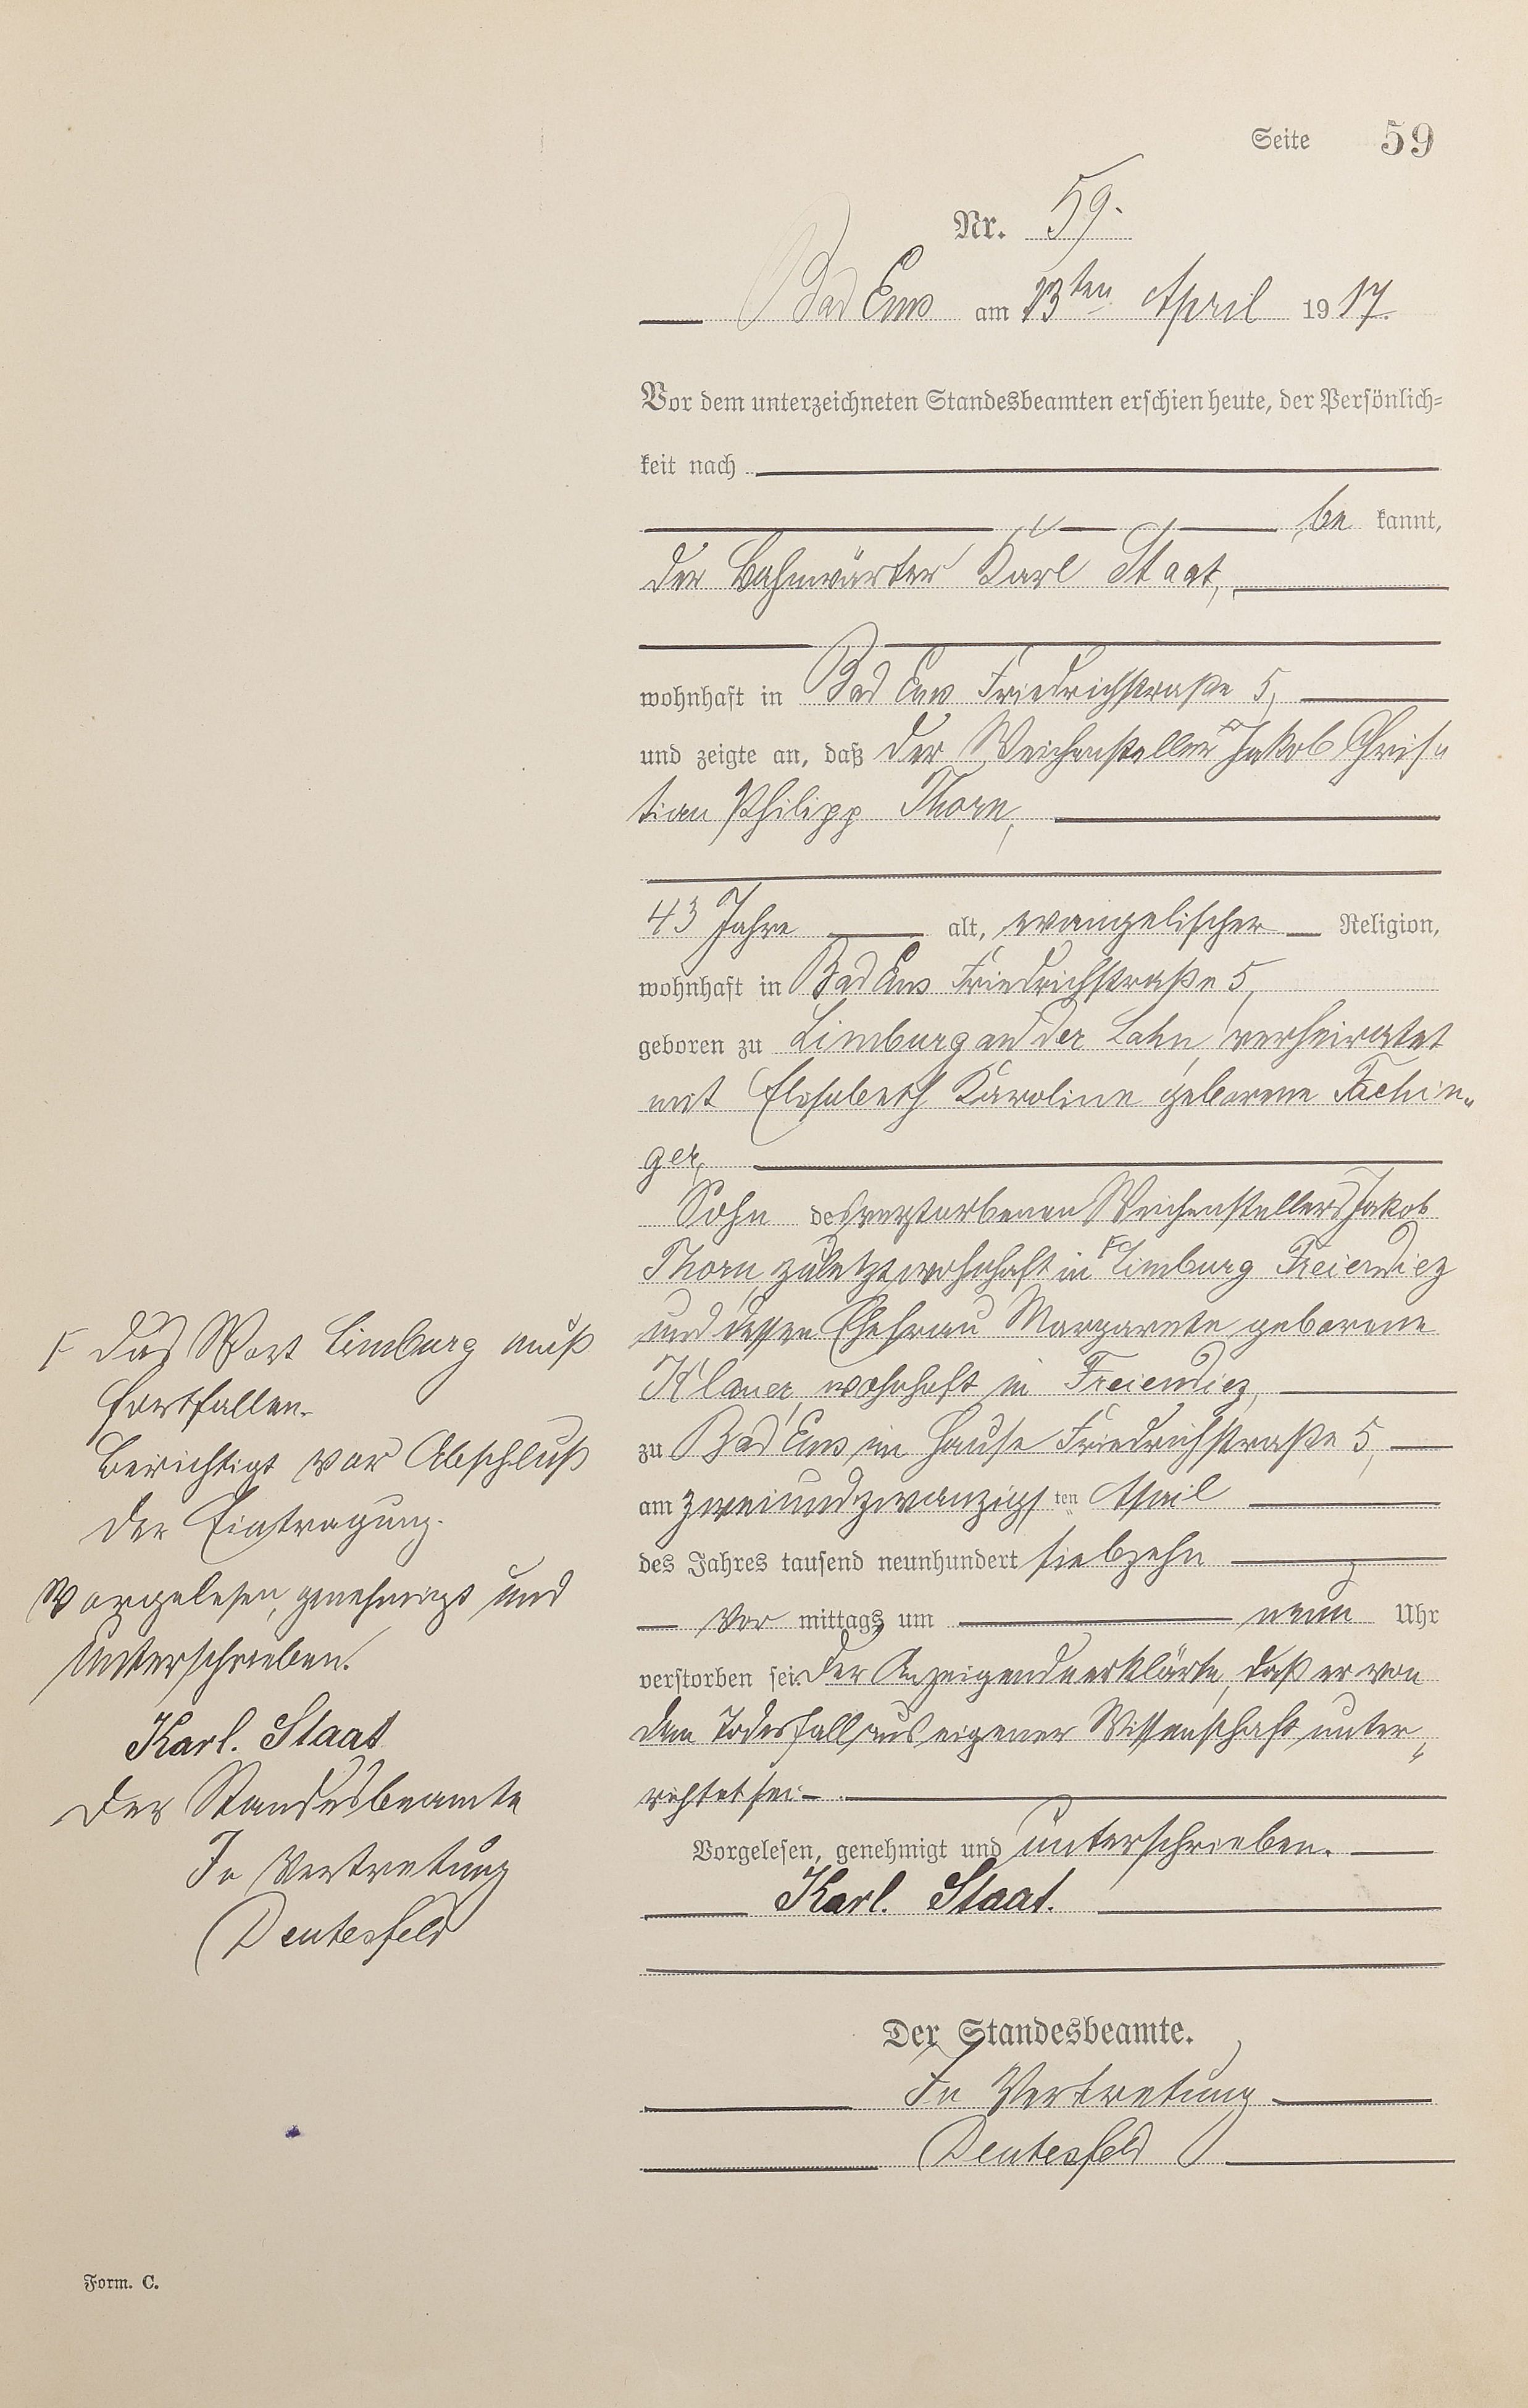 Seite 59
Nr. 59.
Bad Ems am 23ten April 1917.
Vor dem unterzeichneten Standesbeamten erschien heute, der Persönlich=
keit nach
be kannt,
der Bahnwärter Karl Staat,
wohnhaft in Bad Ems Friedrichstraße 5,
und zeigte an, daß der Weichensteller Jakob Chris„
tian Philipp Thorn,
43 Jahre alt, evangelischer Religion,
wohnhaft in Bad Ems Friedrichstraße 5,
geboren zu Limburg an der Lahn, verheiratet
mit Elisabeth Karoline geborene Fachin„
ger,
Sohn des verstorbenen Weichenstellers Jakob
Thorn, zuletzt wohnhaft in Limburg Freiendiez
und dessen Ehefrau Margarete geborene
Klauer, wohnhaft in Freiendiez,
zu Bad Ems im Hause Friedrichstraße 5,
am zweiundzwanzigsten April
des Jahres tausend neunhundert siebzehn
Vor mittags um neun Uhr
verstorben sei. Der Anzeigende erklärte, daß er von
dem Todesfall aus eigener Wissenschaft unter„
richtet sei.
Vorgelesen, genehmigt und unterschrieben.
Karl. Staat.
Der Standesbeamte.
In Vertretung
Deutesfeld
F Das Wort Limburg muß
fortfallen.
Berichtigt vor Abschluß
der Eintragung.
Vorgelesen, genehmigt und
unterschrieben.
Karl. Staat
Der Standesbeamte
In Vertretung
Deutesfeld
Form. C.